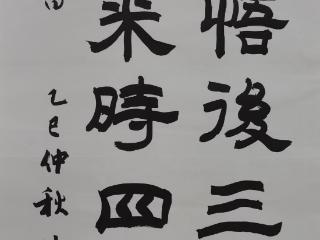 悟後三
來時四
乙巳仲秋